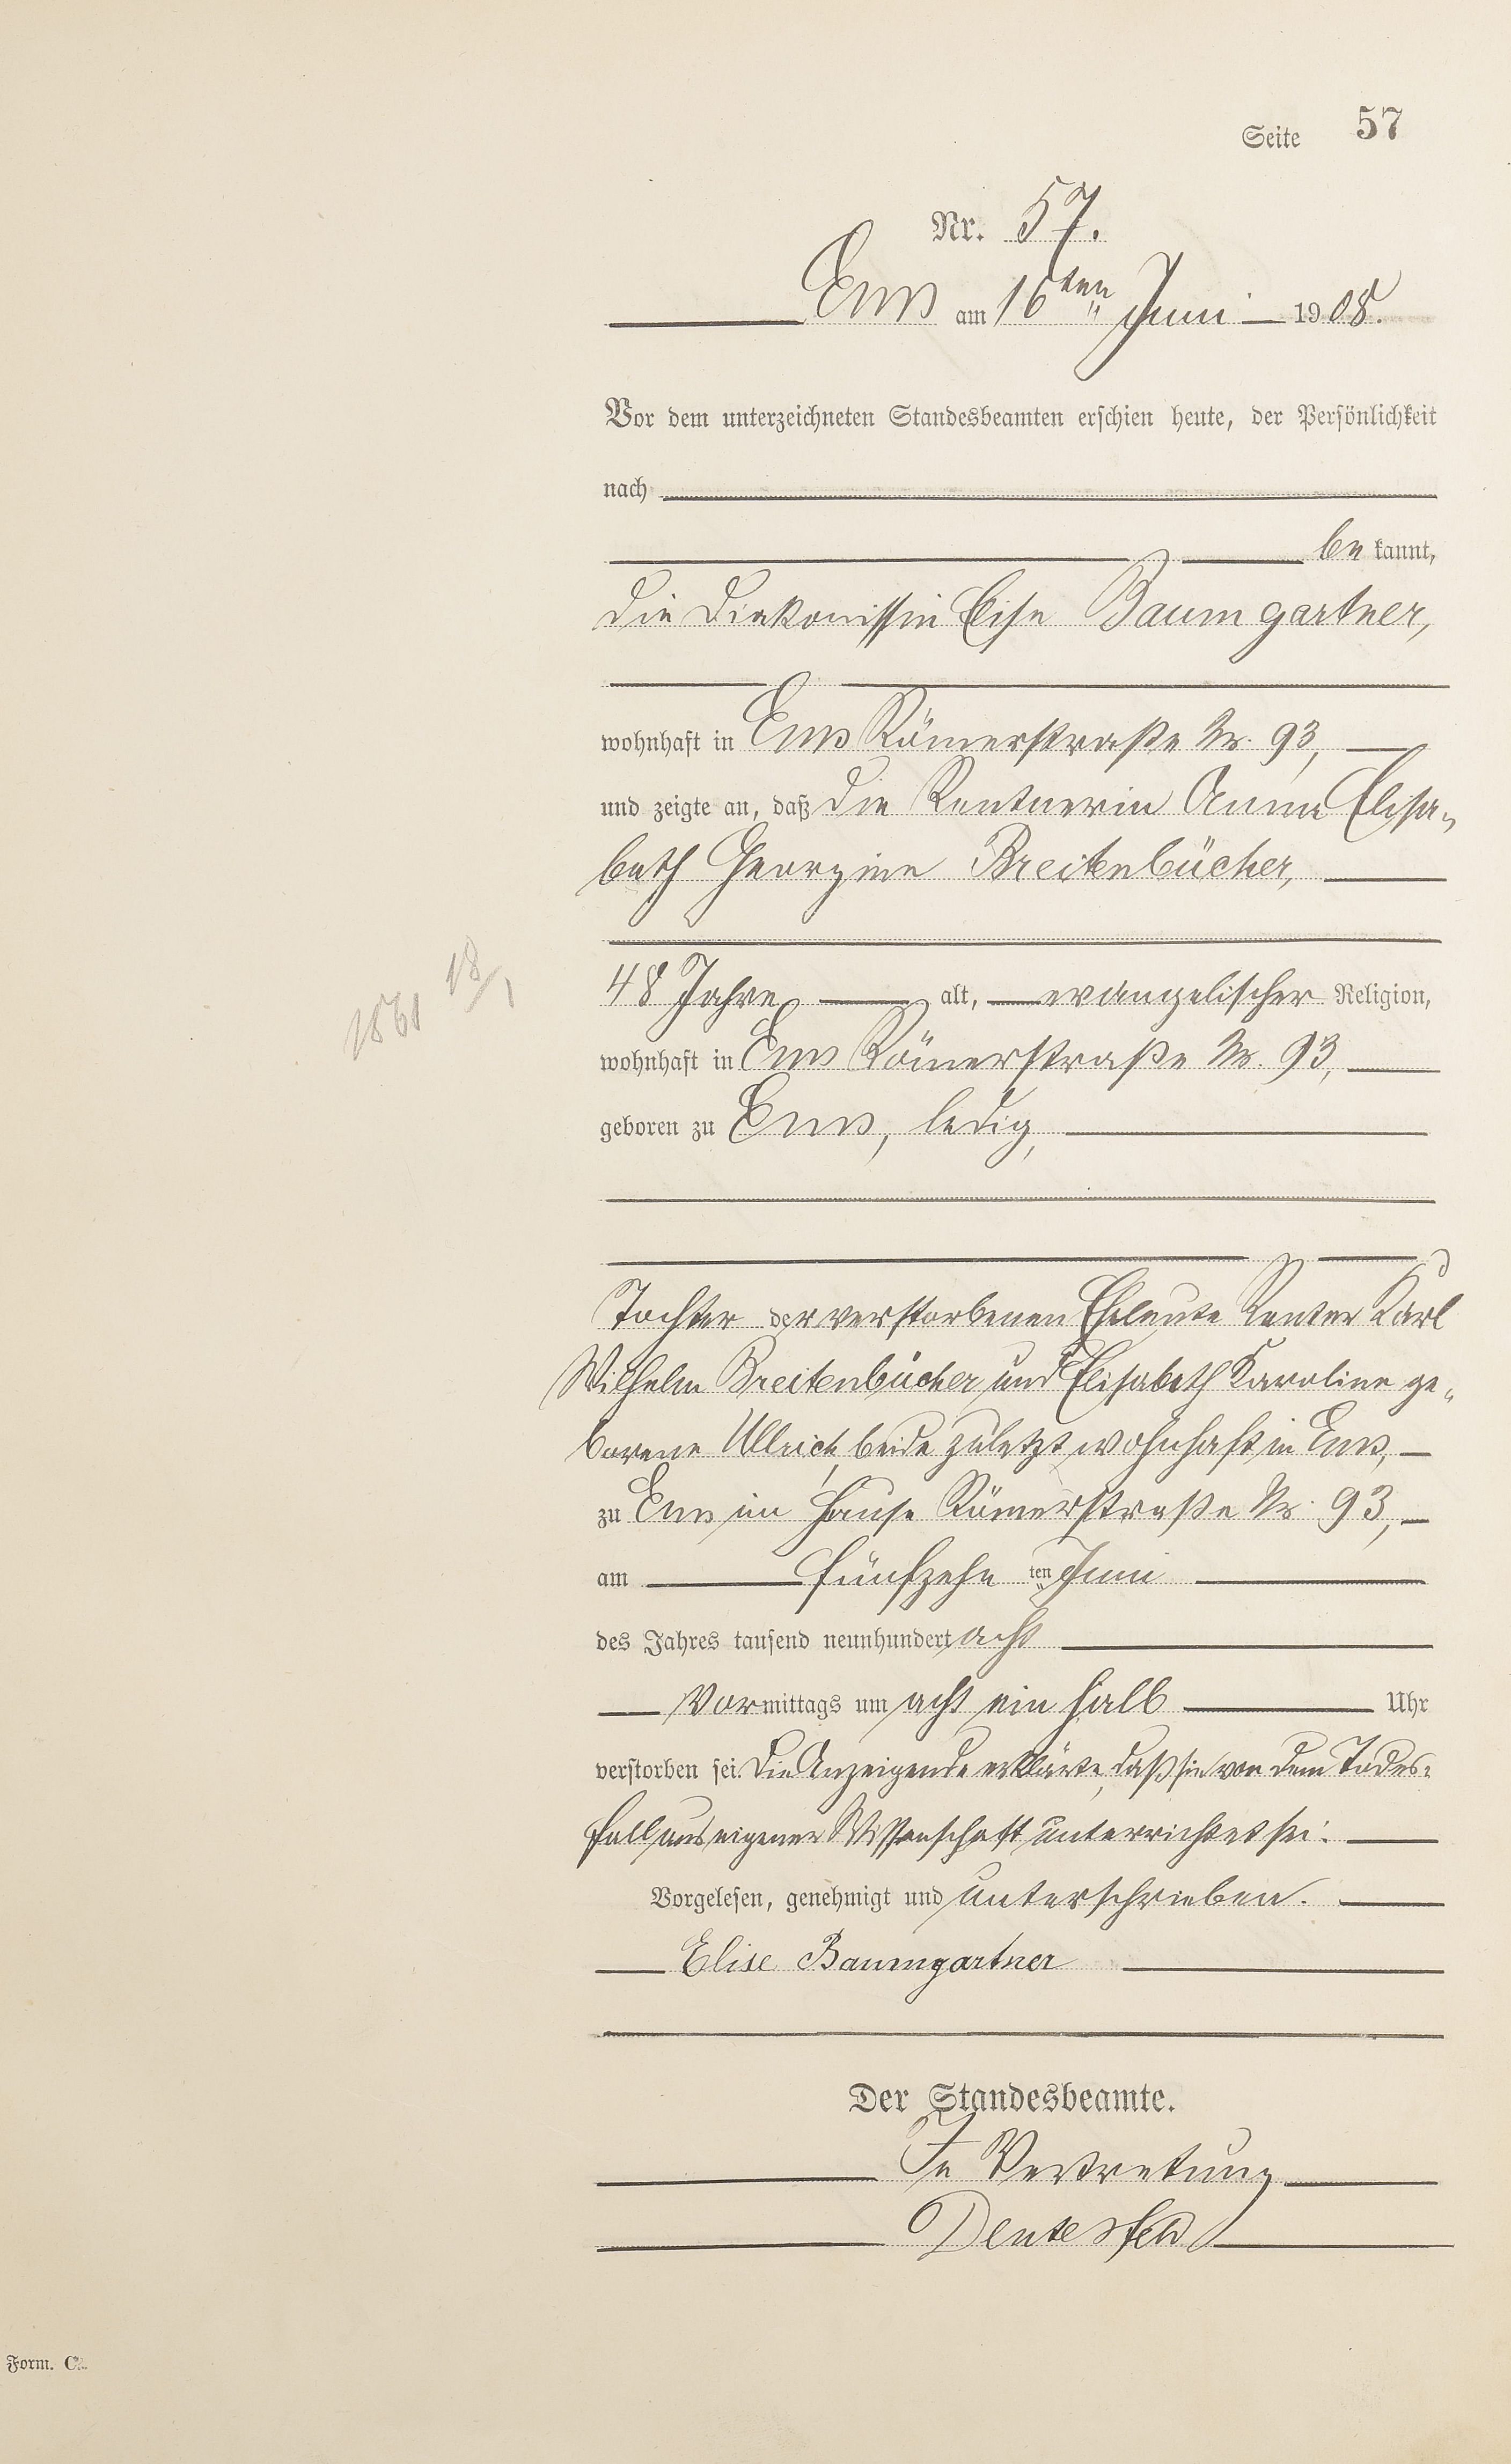 Seite 57
Nr. 57.
Ems am 16ten Juni 1908.
Vor dem unterzeichneten Standesbeamten erschien heute, der Persönlichkeit
nach
be kannt,
die Diakonissin Elise Baumgartner,
wohnhaft in Ems Römerstraße Nr. 93,
und zeigte an, daß die Rentnerin Anna Elisa-
beth Georgine Breitenbücher,
48 Jahre alt, evangelischer Religion,
1861 18/1
wohnhaft in Ems Römerstraße Nr. 93,
geboren zu Ems, ledig,
Tochter der verstorbenen Eheleute Rentner Karl
Wilhelm Breitenbücher und Elisabeth Karoline ge-
borene Ullrich, beide zuletzt wohnhaft in Ems,
zu Ems im Hause Römerstraße Nr. 93,
am fünfzehnten Juni
des Jahres tausend neunhundert acht
Vormittags um acht ein halb Uhr
verstorben sei. Die Anzeigende erklärte, daß sie von dem Todes-
fall aus eigener Wissenschaft unterrichtet sei.
Vorgelesen, genehmigt und unterschrieben.
Elise Baumgartner
Der Standesbeamte.
In Vertretung
Form. C.